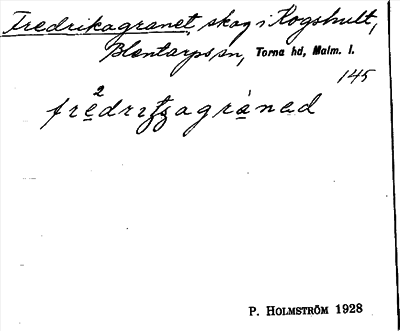 Fredrikagranet, skog i Kogshult,
Blentarps sn, Torna hd, Malm. l.
145
P. HOLMSTRÖM 1928